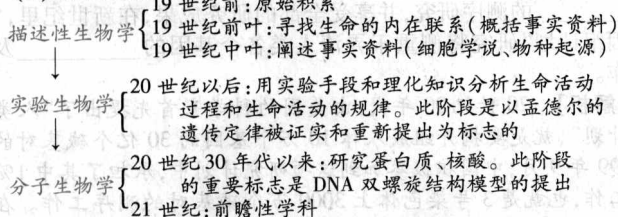 19 世纪前:原始积累
描述性生物学
19 世纪前叶:寻找生命的内在联系(概括事实资料)
19 世纪中叶:阐述事实资料(细胞学说、物种起源)
实验生物学
20 世纪以后:用实验手段和理化知识分析生命活动
过程和生命活动的规律。此阶段是以孟德尔的
遗传定律被证实和重新提出为标志的
分子生物学
20 世纪 30 年代以来:研究蛋白质、核酸。此阶段
的重要标志是 DNA 双螺旋结构模型的提出
21 世纪:前瞻性学科